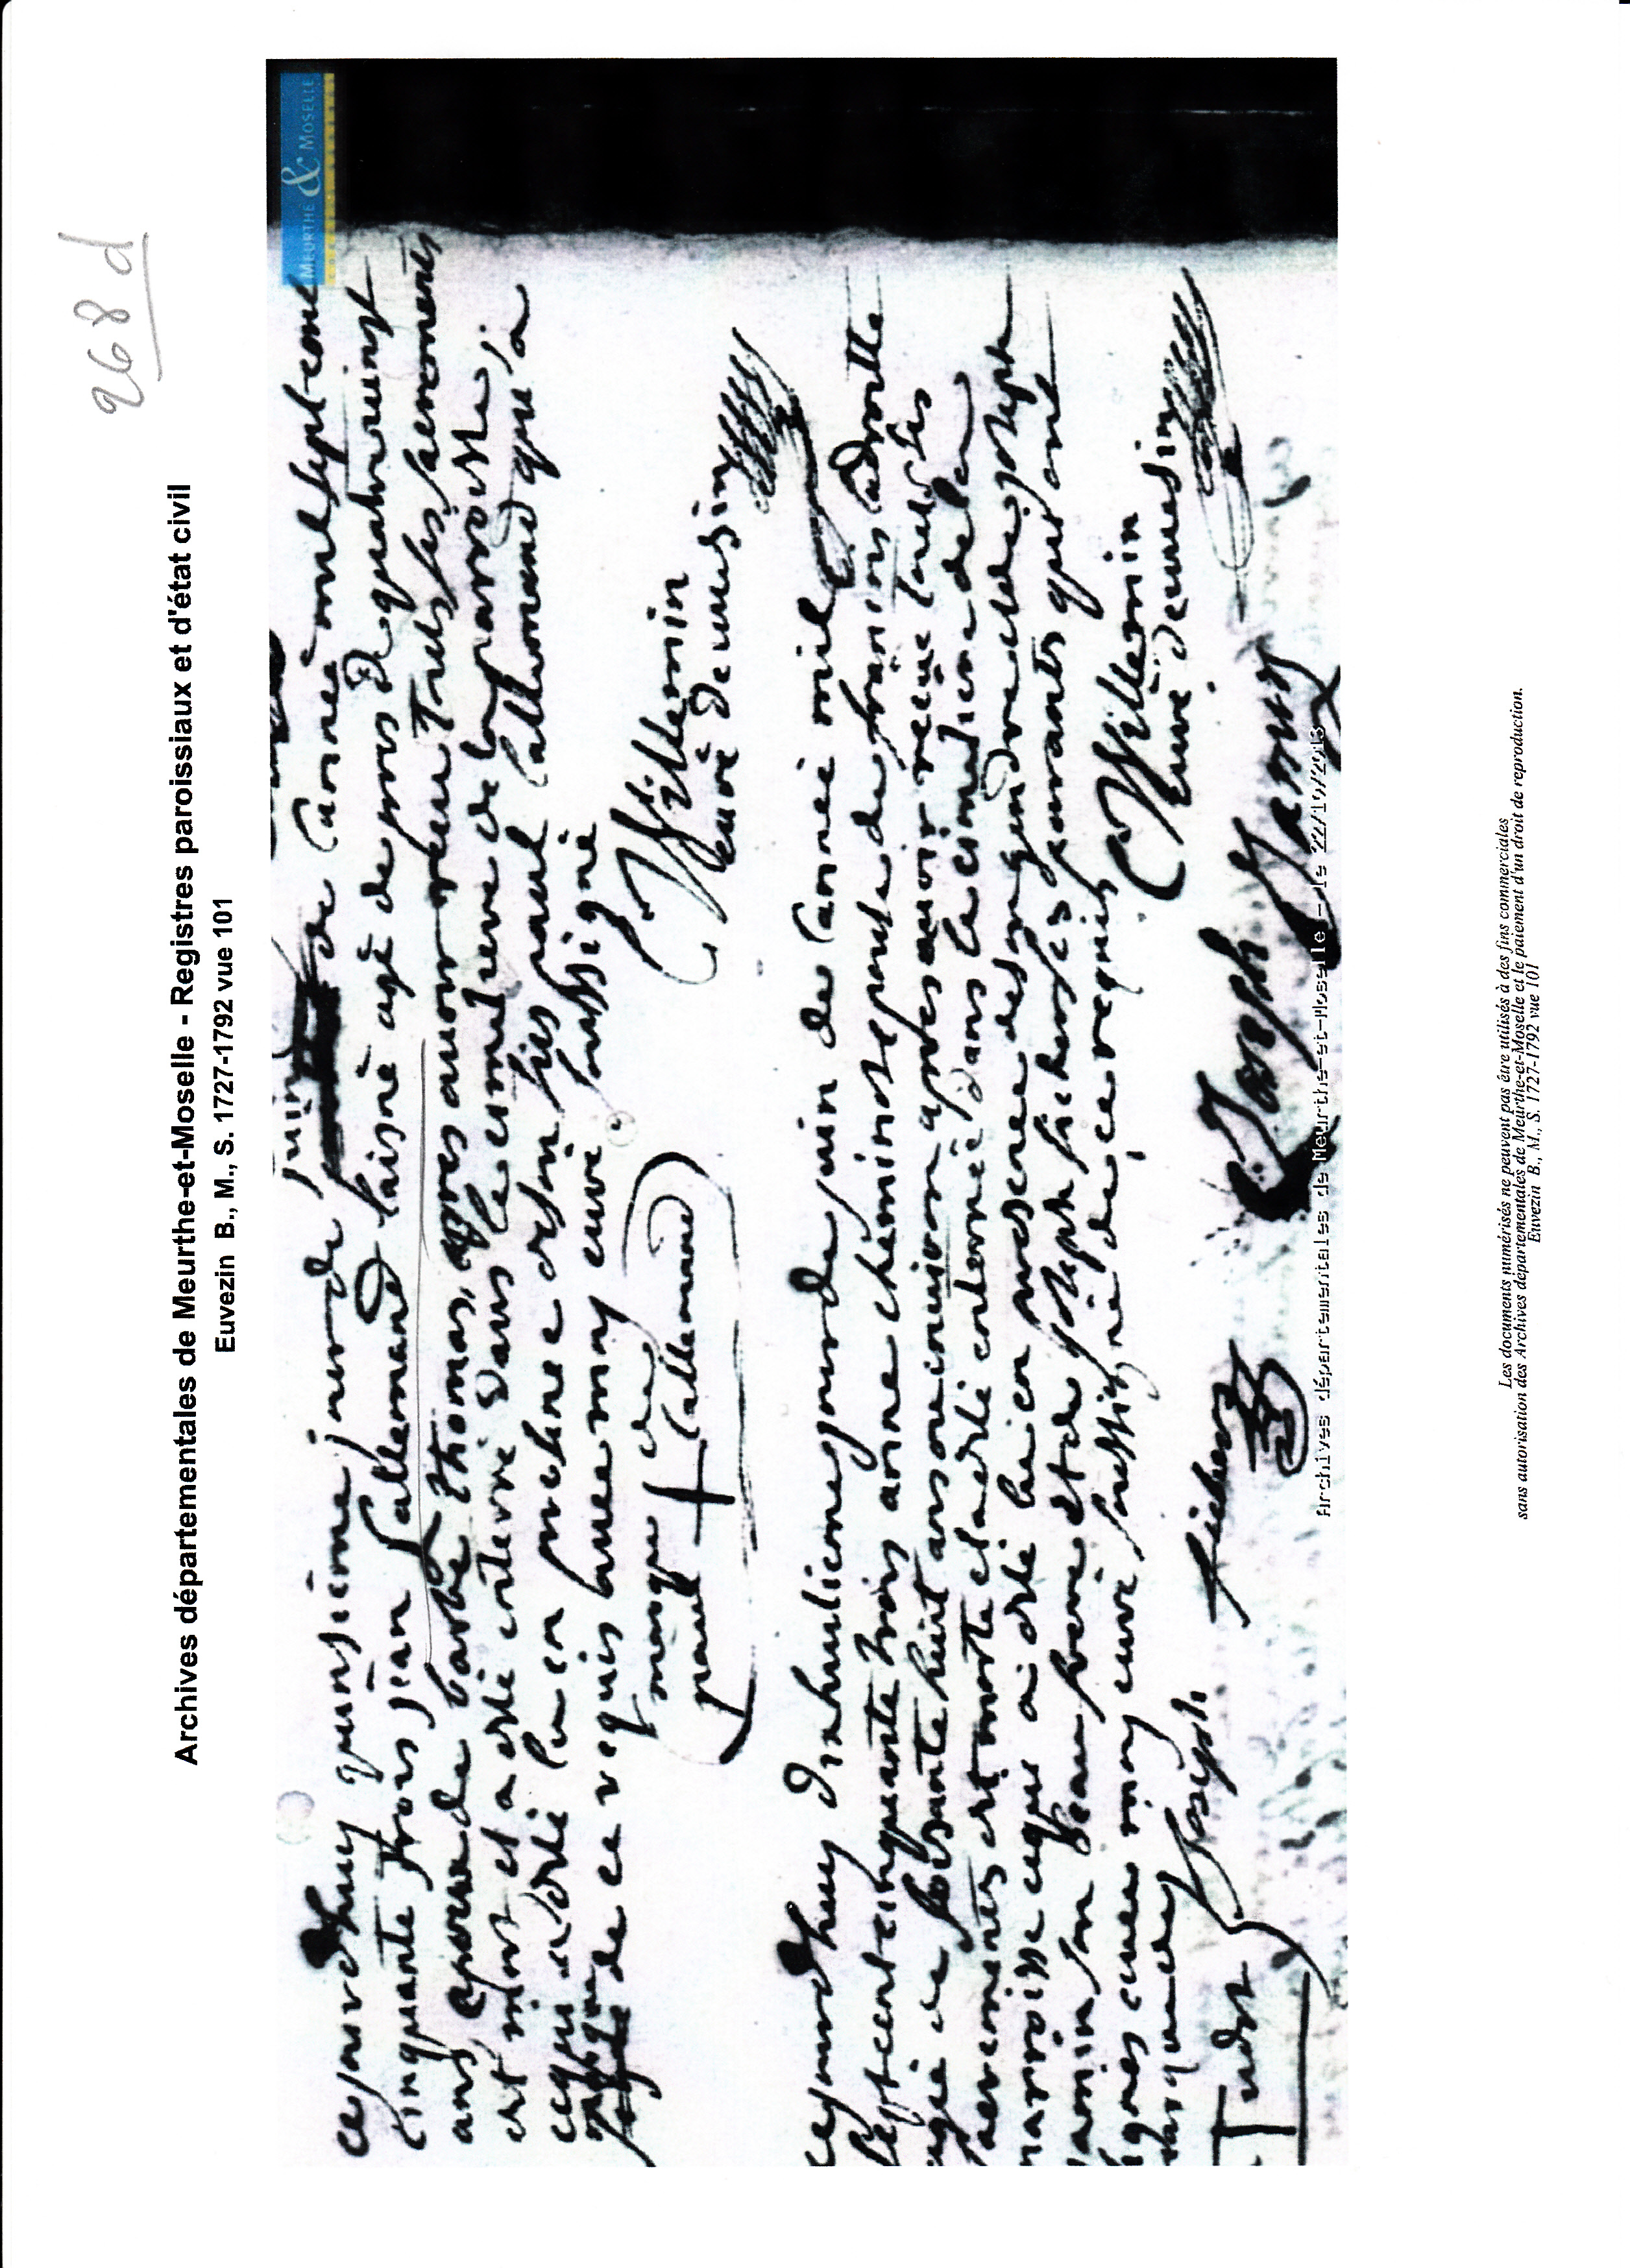 268 d
Archives départementales de Meurthe-et-Moselle - Registres paroissiaux et d'état civil
Euvezin B., M., S. 1727-1792 vue 101
MEURTHE & MOSELLE
juin
cejourdhuy quinsieme jour de de lannee mil sept cent
cinquante trois jean lallemand laisné agé de pres de quatrevingt
ans epoux de barbe thomas, apres avoir recu touts ses sacrements
est mort et a esté enterré dans le cimetiere de la paroisse
ce qui a esté lu en presence de son fils paul lallemand qui a
de ce requis avec moy curé soussigné
marque de
paul + lallemand
C Willemin
curé deuvesin
cejourdhuy dixhuitieme jour de juin de lannee mil
sept cent cinquante trois anne cheminot epouse de francois ladrotte
agée de soisante huit ans ou environ apres avoir recue touts ses
sacrements est morte et a esté enterrée dans le cimetiere de la
paroisse ce qui a esté lu en presence de son gendre et de joseph
jamin son beau frere et de joseph sicherf parants qui ont
signes avec moy curé soussigné de ce requis
marque de
C Willemin
curé deuvesin
Joseph
Joseph Jamin
Archives départementales de Meurthe-et-Moselle - le 22/10/2013
Les documents numérisés ne peuvent pas être utilisés à des fins commerciales
sans autorisation des Archives départementales de Meurthe-et-Moselle et le paiement d'un droit de reproduction.
Euvezin B., M., S. 1727-1792 vue 101